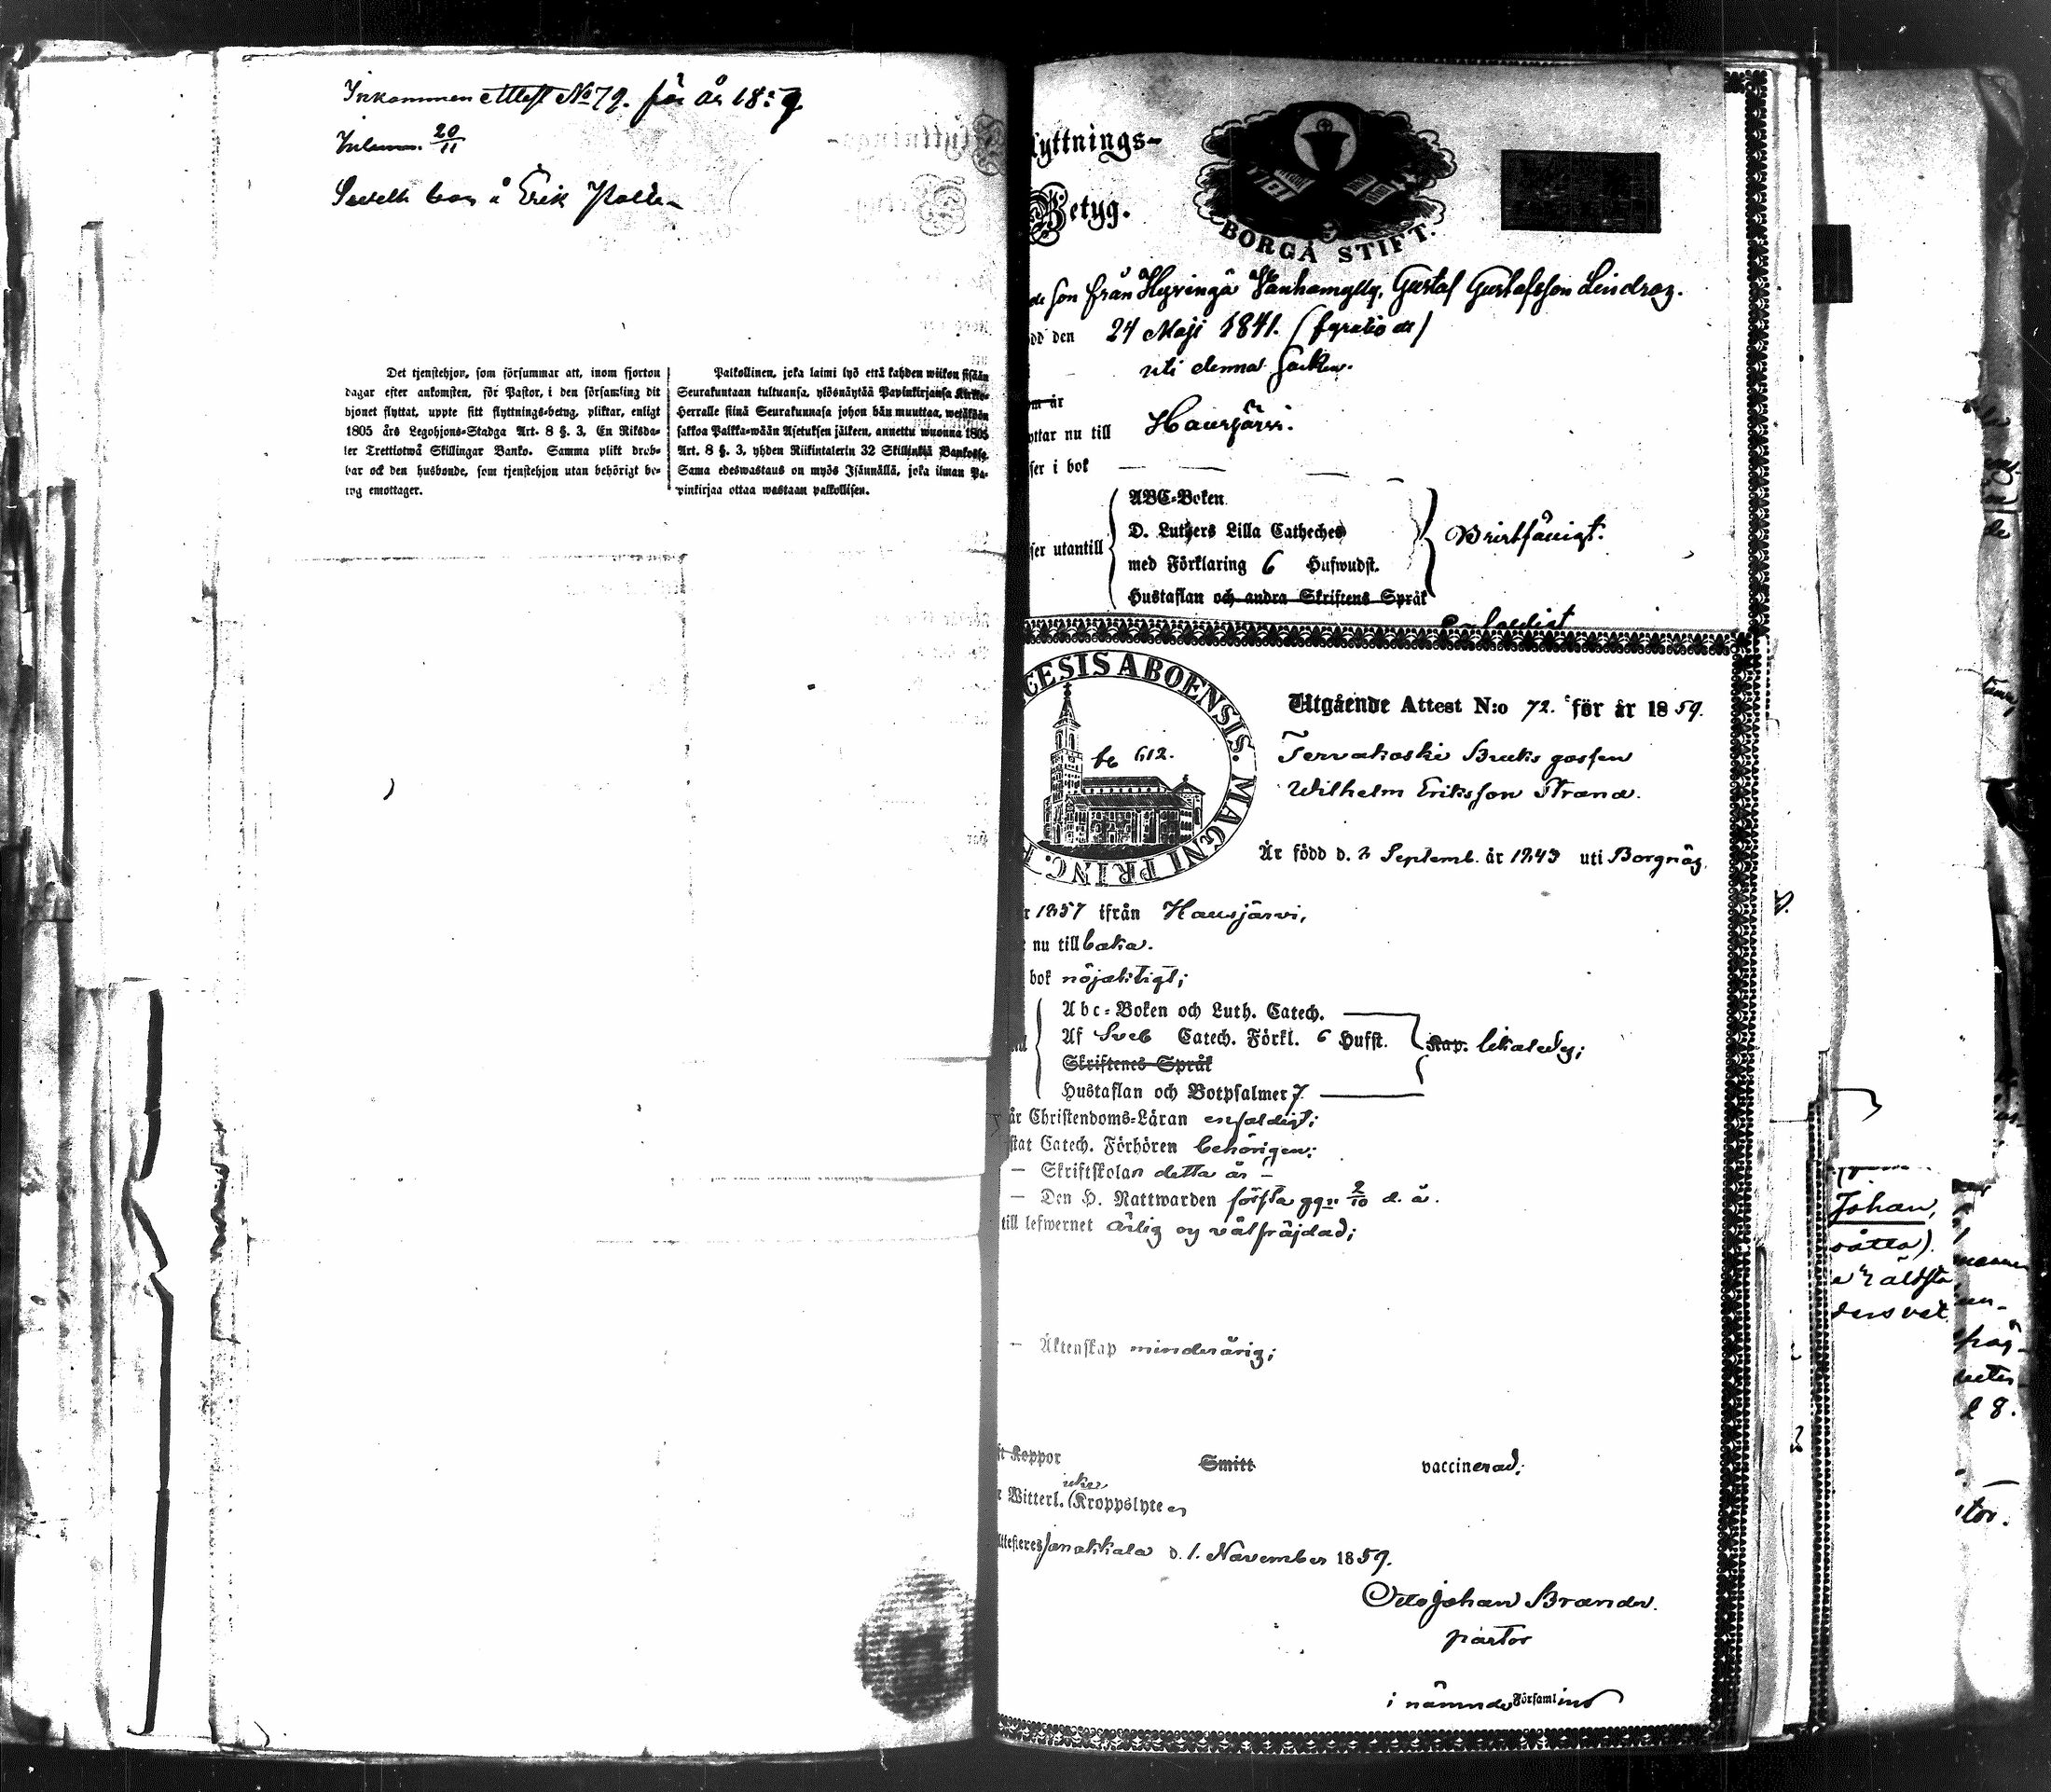 Inkommen Attest No 79. för år 1859
Inlemn. 20/11
Erik
Det tjenstehjon, som försummar att, inom fjorton
dagar efter ankomsten, för Pastor, i den församling dit
hjonet flyttat, uppte sitt flyttnings-betyg, pliktar, enligt
1805 års Legohjons-Stadga Art. 8 §. 3, En Riksda-
ler Trettiotwå Skillingar Banko. Samma plikt drab-
bar ock den husbonde, som tjenstehjon utan behörigt be-
tyg emottager.
Palkollinen, joka laimi lyö että kahden wiikon sisään
Seurakuntaan tultuansa, ylösnäytää Papinkirjansa Kirko-
Herralle siinä Seurakunnasa johon hän muuttaa, wetäkään
sakkoa Palkka-wään Asetuksen jälkeen, annettu wuonna 1805
Art. 8 §. 3, yhden Riikintalerin 32 Skillinkiä Bankossa.
Sama edeswastaus on myös Isännällä, joka ilman Pa-
pinkirjaa ottaa wastaan palkollisen.
lyttnings-
Betyg.
BORGÅ STIFT.
de son från Hyvingä Vanhamylly, Gustaf Gustafsson Lindroos.
dd den 24 Maji 1841. (fyratio ett)
uti denna Socken.
m år
ttar nu till Hausjärvi.
ser i bok — —
ABC-Boken
D. Luthers Lilla Catheches
ser utantill
med Förklaring 6 Hufwudst.
Hustaflan och andra Skriftens Språk
enfaldigt
CESIS ABOENSIS. MAGNI PRINC.
612.
Utgående Attest N:o 72. för år 1859.
Tervakoski Bruks gossen
Wilhelm Eriksson Strand.
Är född d. 2 Septemb. år 1843 uti Borgnäs,
r 1857 ifrån Hausjärvi,
nu tillbaka.
bok nöjaktigt;
Abc-Boken och Luth. Catech.
Af Sveb Catech. Förkl. 6 Hufst.
Kap. likaledes;
Skriftenes Språk
Hustaflan och Botpsalmer 7.
år Christendoms-Läran enfaldigt;
stat Catech. Förhören behörigen;
— Skriftskolan detta år —
— Den H. Nattwarden första ggn 2/10 d. å.
till lefwernet ärlig og välfräjdad;
— Äktenskap minderårig;
st Koppor Smitt vaccinerad;
icke
r Witterl. (Kroppslyte
Attesteres Janakkala d. 1. November 1859.
Otto Johan Brander.
pastor
i nämnde Församling
Johan,